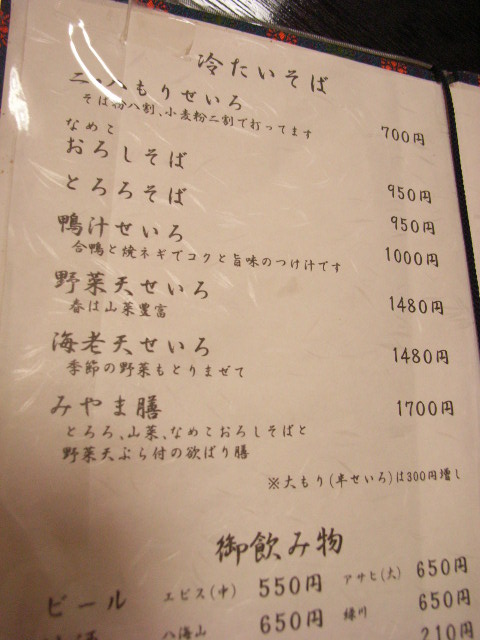 冷たいそば
二・八もりせいろ 700円
そば粉八割、小麦粉二割で打ってます
なめこ
おろしそば 950円
とろろそば 950円
鴨汁せいろ 1000円
合鴨と焼ネギでコクと旨味のつけ汁です
野菜天せいろ 1480円
春は山菜豊富
海老天せいろ 1480円
季節の野菜もとりまぜて
みやま膳 1700円
とろろ、山菜、なめこおろしそばと
野菜天ぷら付の欲ばり膳
※大もり(半せいろ)は300円増し
御飲み物
ビール エビス(中) 550円 アサヒ(大) 650円
八海山 650円 緑川 650円
210円